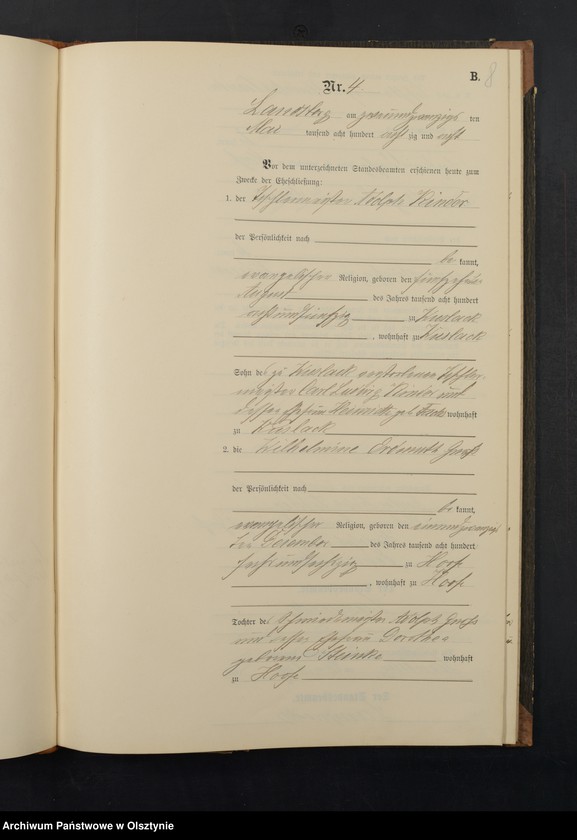 B.
8
Nr. 4
Landsberg am zweiundzwanzigsten den
Mai tausend acht hundert achtzig und acht
Vor dem unterzeichneten Standesbeamten erschienen heute zum
Zwecke der Eheschließung:
1. der Tischlermeister Adolph Rinder
der Persönlichkeit nach
be kannt,
evangelischer Religion, geboren den fünfzehnten
August des Jahres tausend acht hundert
achtundfünfzig zu
, wohnhaft zu
Sohn des zu verstorbenen Tischler-
meister Carl Ludwig und
dessen Ehefrau geb. wohnhaft
zu
2. die Wilhelmine
der Persönlichkeit nach
be kannt,
evangelischer Religion, geboren den einundzwanzig
ten Dezember des Jahres tausend acht hundert
sechsundsechzig zu Hoofe
, wohnhaft zu Hoofe
Tochter des Schmiedemeister Adolph
und dessen Ehefrau Dorothea
geborene Steinke wohnhaft
zu Hoofe
Archiwum Państwowe w Olsztynie